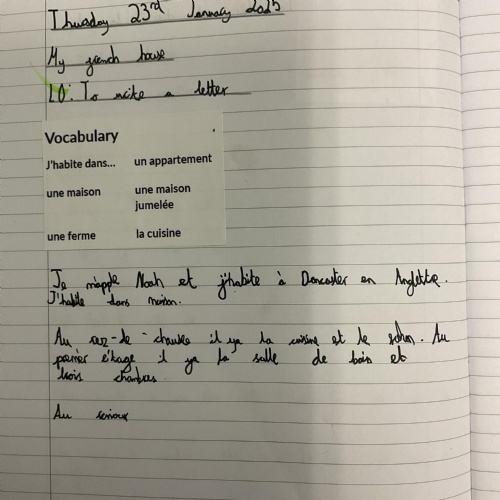 Thursday 23rd January 2025
My french house
LO: To write a letter
Vocabulary
J'habite dans... un appartement
une maison une maison
jumelée
une ferme la cuisine
Je m'apple Noah et j'habite à Doncaster en
J'habite dans maison.
Au rez-de-chausée il ya la cuisine et le salon. Au
premier étage il ya la salle de bain et
trois chambres
Au